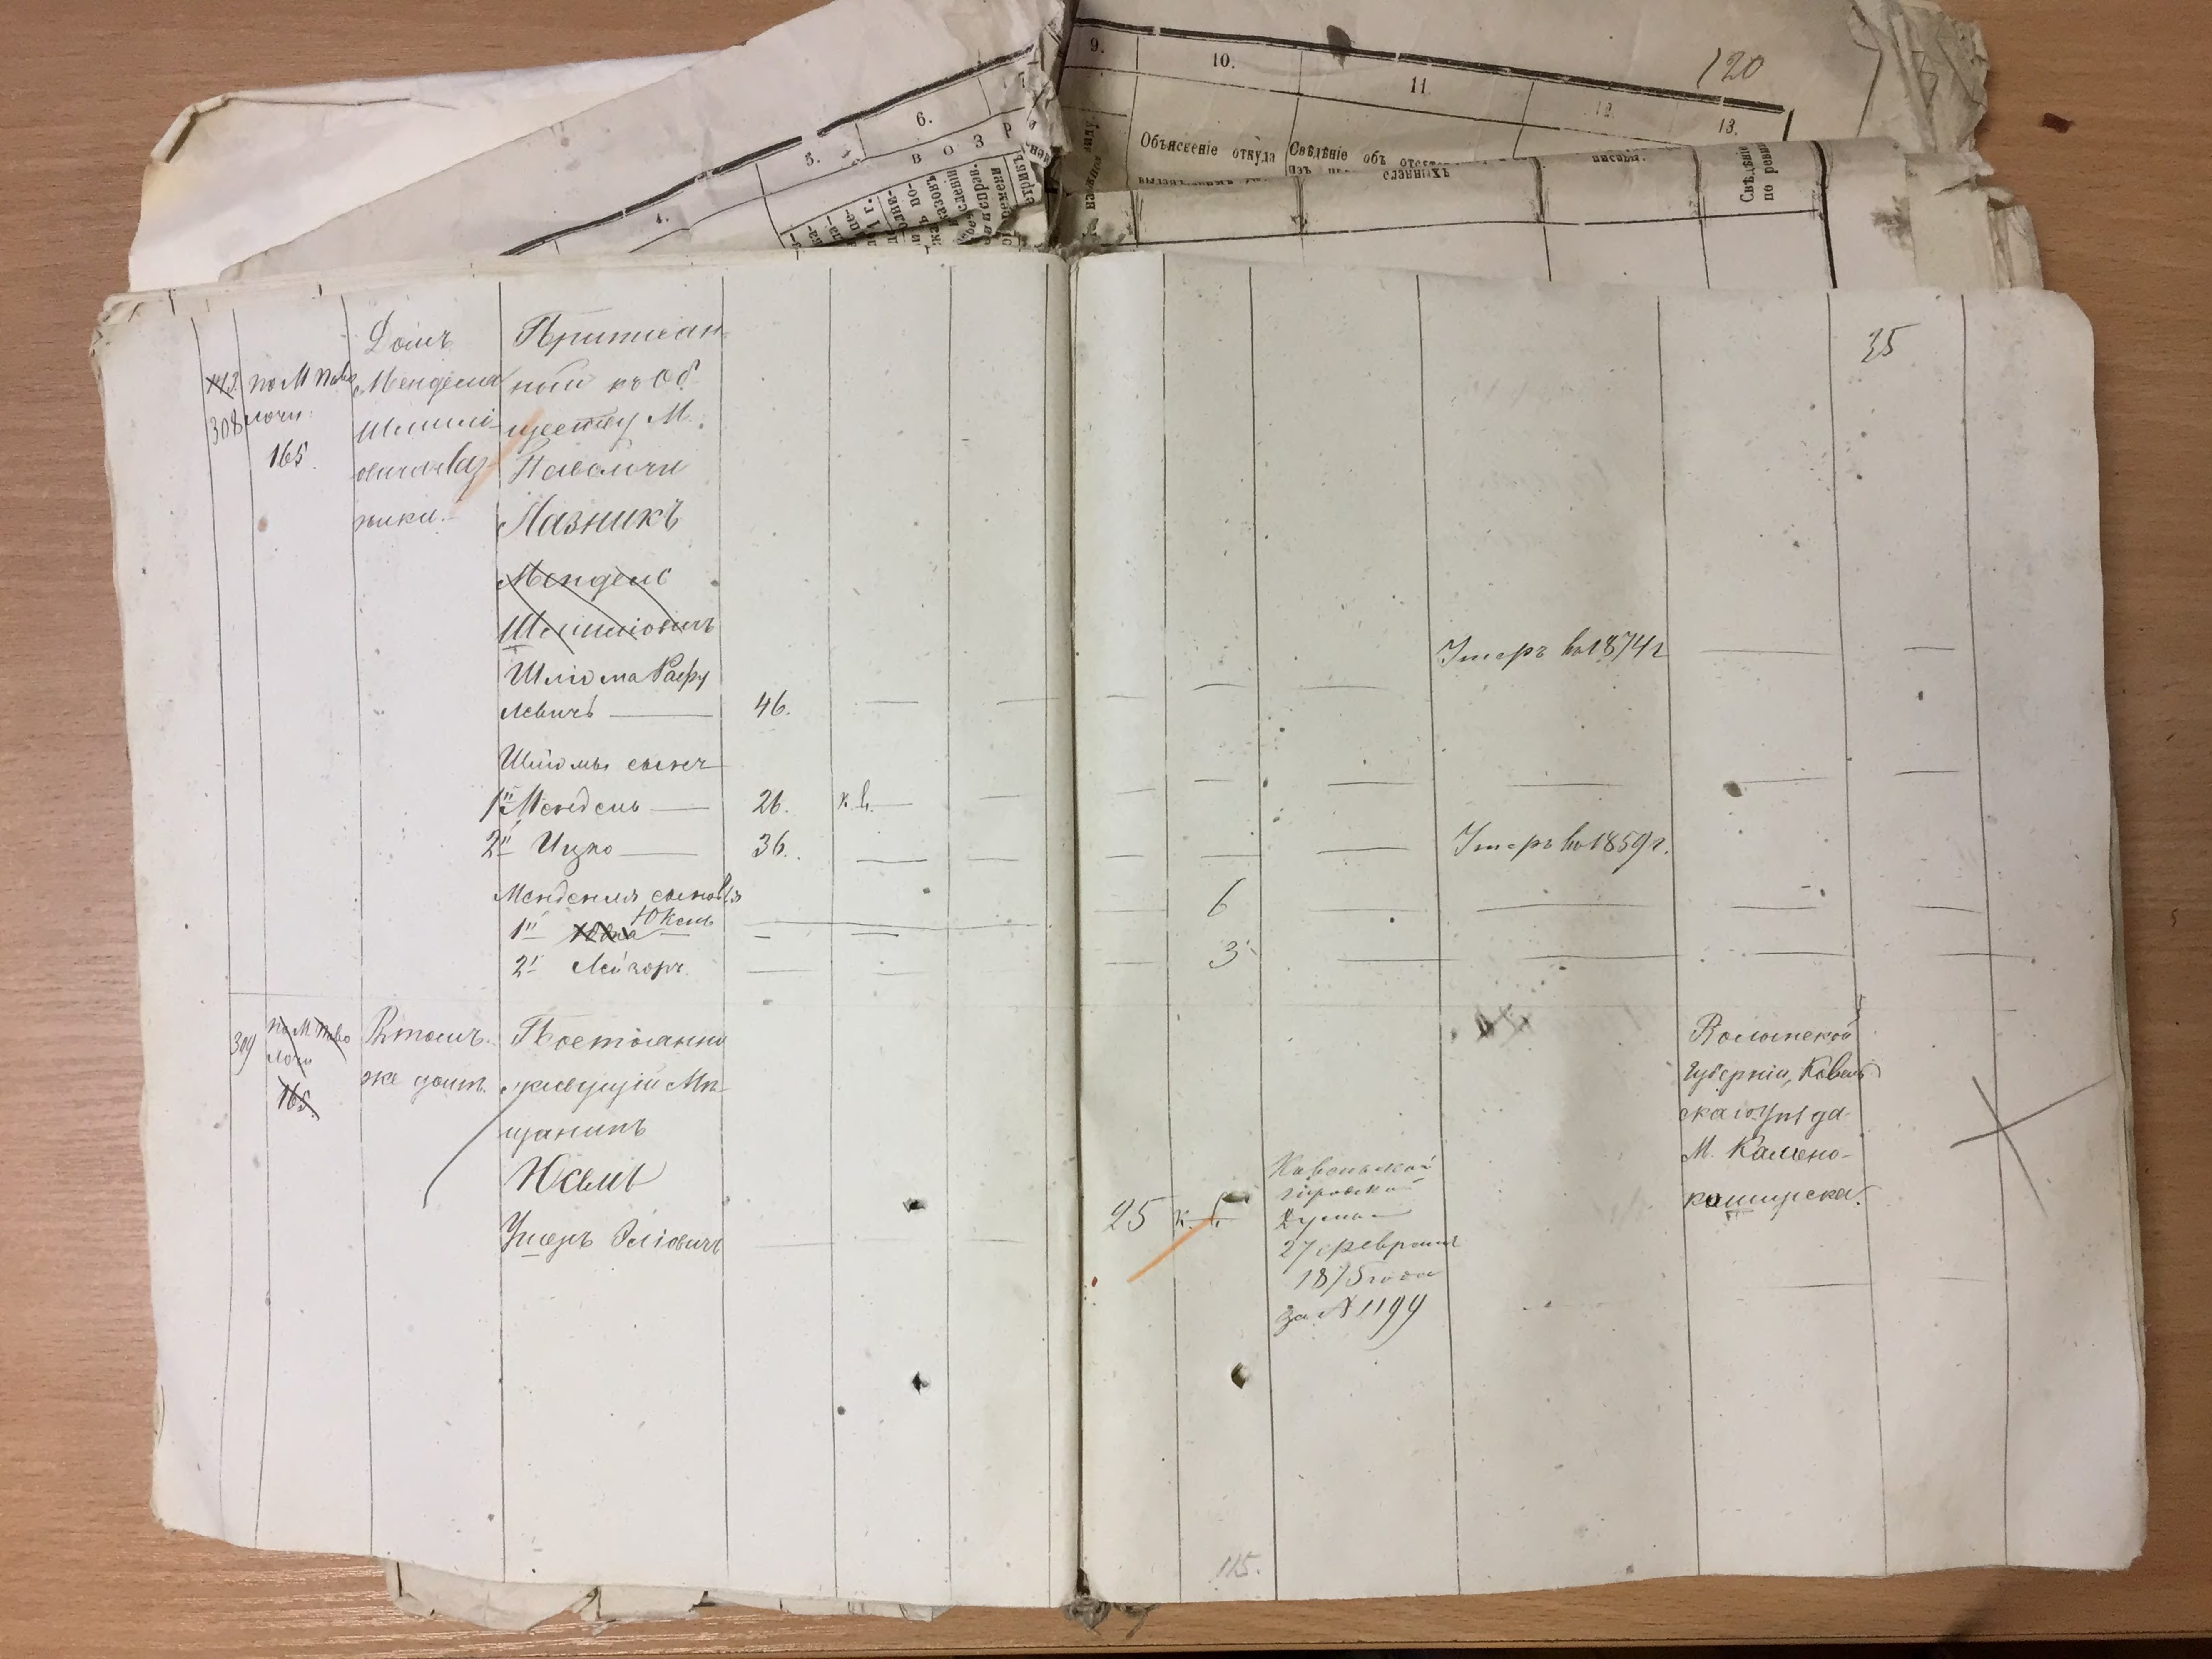 120
9.
10.
11.
12.
13.
4.
5.
6.
7.
В О З Р
Объясненіе откуда
Свѣдѣніе объ
Свѣдѣніе
по ревиз
35
143
308
по М Паво
лочи
165.
Домъ
Менделя
Шлиомо
вича Лаз
ника.
Приписан
ный къ Об
ществу М.
Паволочи
Лазникъ
Мендель
Шлиомовичъ
Шлиома Сафру
левичъ
46.
Умеръ въ 1874 г
Шліомы сыны
1й Мендель
26.
к. в.
2й Ицко
36.
Умеръ въ 1859 г.
Менделя сыновья
1й Юкель
6
2й Лейзоръ
3
309
по М Паво
лочи
165.
Въ томъ
же домѣ
Постоянно
живущій Мѣ
щанинъ
Усемъ
Ушеръ Эліовичъ
25
к. в.
Ковельской
городской
Думы
27 февраля
1875 года
за № 1199
Волынской
Губерніи, Ковель
скаго Уѣзда
М. Камено-
коширска.
115.